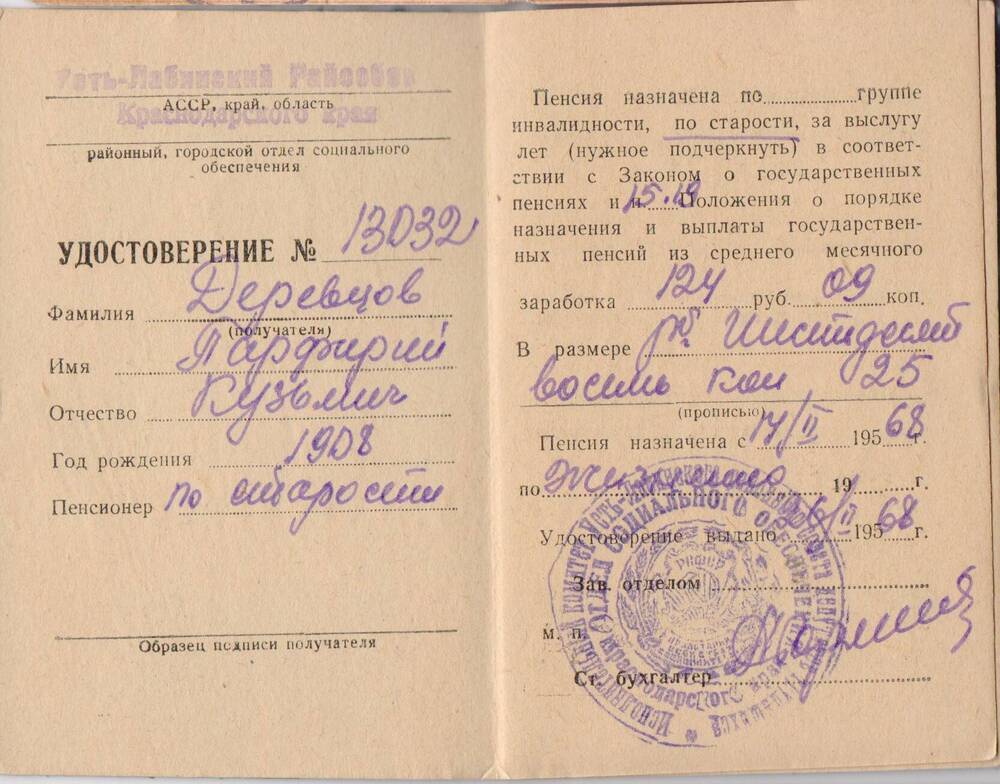 Усть-Лабинский Райсобес
АССР, край, область
Краснодарского края
районный, городской отдел социального
обеспечения
УДОСТОВЕРЕНИЕ № 13032
Фамилия Деревцов
(получателя)
Имя Парфирий
Отчество Кузьмич
Год рождения 1908
Пенсионер по старости
Образец подписи получателя
Пенсия назначена по группе
инвалидности, по старости, за выслугу
лет (нужное подчеркнуть) в соответ-
ствии с Законом о государственных
пенсиях и п. 15.19 Положения о порядке
назначения и выплаты государствен-
ных пенсий из среднего месячного
заработка 124 руб. 09 коп.
В размере руб Шестьдесят
восемь коп 25
(прописью)
Пенсия назначена с 17/II 195 68 г.
по жизненно 19 г.
Удостоверение выдано 26/II 195 68 г.
Зав. отделом
м. п.
Ст. бухгалтер
Исполнительный комитет Усть-Лабинского районного Совета депутатов трудящихся
Краснодарского края
ОТДЕЛ СОЦИАЛЬНОГО ОБЕСПЕЧЕНИЯ
РСФСР